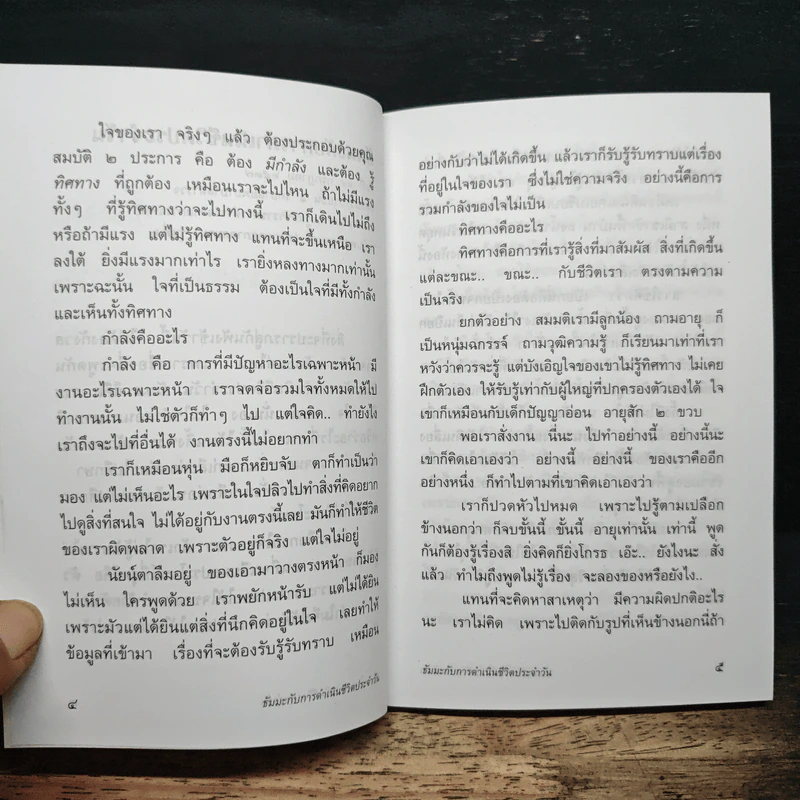 ใจของเรา จริงๆ แล้ว ต้องประกอบด้วยคุณ
สมบัติ ๒ ประการ คือ ต้อง มีกำลัง และต้อง รู้
ทิศทาง ที่ถูกต้อง เหมือนเราจะไปไหน ถ้าไม่มีแรง
ทั้งๆ ที่รู้ทิศทางว่าจะไปทางนี้ เราก็เดินไปไม่ถึง
หรือถ้ามีแรง แต่ไม่รู้ทิศทาง แทนที่จะขึ้นเหนือ เรา
ลงใต้ ยิ่งมีแรงมากเท่าไร เรายิ่งหลงทางมากเท่านั้น
เพราะฉะนั้น ใจที่เป็นธรรม ต้องเป็นใจที่มีทั้งกำลัง
และเห็นทั้งทิศทาง
กำลังคืออะไร
กำลัง คือ การที่มีปัญหาอะไรเฉพาะหน้า มี
งานอะไรเฉพาะหน้า เราจดจ่อรวมใจทั้งหมดให้ไป
ทำงานนั้น ไม่ใช่ตัวก็ทำๆ ไป แต่ใจคิด.. ทำยังไง
เราถึงจะไปที่อื่นได้ งานตรงนี้ไม่อยากทำ
เราก็เหมือนหุ่น มือก็หยิบจับ ตาก็ทำเป็นว่า
มอง แต่ไม่เห็นอะไร เพราะในใจปลิวไปทำสิ่งที่คิดอยาก
ไปดูสิ่งที่สนใจ ไม่ได้อยู่กับงานตรงนี้เลย มันก็ทำให้ชีวิต
ของเราผิดพลาด เพราะตัวอยู่ก็จริง แต่ใจไม่อยู่
นัยน์ตาลืมอยู่ ของเอามาวางตรงหน้า ก็มอง
ไม่เห็น ใครพูดด้วย เราพยักหน้ารับ แต่ไม่ได้ยิน
เพราะมัวแต่ได้ยินแต่สิ่งที่นึกคิดอยู่ในใจ เลยทำให้
ข้อมูลที่เข้ามา เรื่องที่จะต้องรับรู้รับทราบ เหมือน
๔
ธัมมะกับการดำเนินชีวิตประจำวัน
อย่างกับว่าไม่ได้เกิดขึ้น แล้วเราก็รับรู้รับทราบแต่เรื่อง
ที่อยู่ในใจของเรา ซึ่งไม่ใช่ความจริง อย่างนี้คือการ
รวมกำลังของใจไม่เป็น
ทิศทางคืออะไร
ทิศทางคือการที่เรารู้สิ่งที่มาสัมผัส สิ่งที่เกิดขึ้น
แต่ละขณะ.. ขณะ.. กับชีวิตเรา ตรงตามความ
เป็นจริง
ยกตัวอย่าง สมมติเรามีลูกน้อง ถามอายุ ก็
เป็นหนุ่มฉกรรจ์ ถามวุฒิความรู้ ก็เรียนมาเท่าที่เรา
หวังว่าควรจะรู้ แต่บังเอิญใจของเขาไม่รู้ทิศทาง ไม่เคย
ฝึกตัวเอง ให้รับรู้เท่ากับผู้ใหญ่ที่ปกครองตัวเองได้ ใจ
เขาก็เหมือนกับเด็กปัญญาอ่อน อายุสัก ๒ ขวบ
พอเราสั่งงาน นี่นะ ไปทำอย่างนี้ อย่างนี้นะ
เขาก็คิดเอาเองว่า อย่างนี้ อย่างนี้ ของเราคืออีก
อย่างหนึ่ง ก็ทำไปตามที่เขาคิดเอาเองว่า
เราก็ปวดหัวไปหมด เพราะไปรู้ตามเปลือก
ข้างนอกว่า ก็จบชั้นนี้ ชั้นนี้ อายุเท่านั้น เท่านี้ พูด
กันก็ต้องรู้เรื่องสิ ยิ่งคิดก็ยิ่งโกรธ เอ๊ะ.. ยังไงนะ สั่ง
แล้ว ทำไมถึงพูดไม่รู้เรื่อง จะลองของหรือยังไง..
แทนที่จะคิดหาสาเหตุว่า มีความผิดปกติอะไร
นะ เราไม่คิด เพราะไปติดกับรูปที่เห็นข้างนอกนี่ถ้า
ธัมมะกับการดำเนินชีวิตประจำวัน
๕